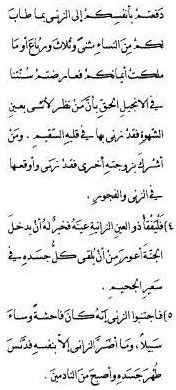 دفعتم بأنفسكم إلى الزنى بما طاب
لكم من النساء مثنى وثلاث ورباع أو ما
ملكت أيمانكم فعارضتم سنتنا
في الإنجيل الحق بأن من نظر لأنثى بعين
الشهوة فقد زنى بها في قلبه السقيم . ومن
أشرك بزوجته أخرى فقد زنى وأوقعها
في الزنى والفجور .
٤) فليفقأ ذو العين الزانية عينه فخير له أن يدخل
الجنة أعور من أن يلقى كل جسده في
سعير الجحيم .
٥) فاجتنبوا الزنى إنه كان فاحشة وساء
سبيلا ، وما أضر الزانى إلا بنفسه فدنس
طهر جسده وأصبح من النادمين .